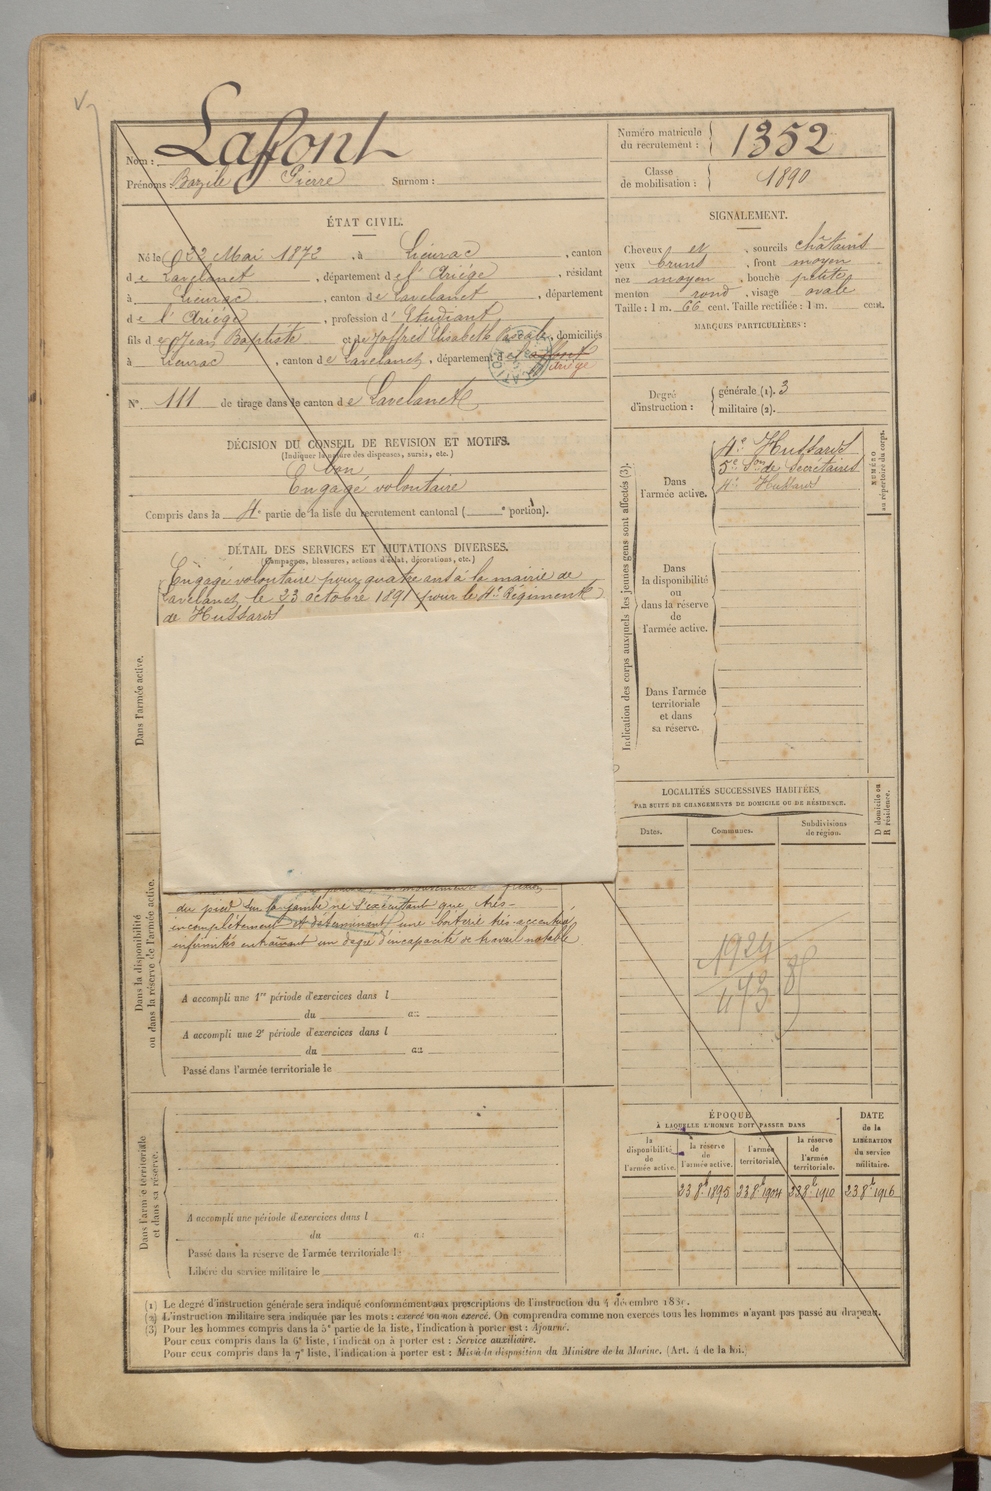 Nom : Lafont
Prénoms : Bazile Pierre Surnom :
Numéro matricule du recrutement : 1352
Classe de mobilisation : 1890
ÉTAT CIVIL.
Né le 22 Mai 1872, à Lieurac, canton
de Lavelanet, département de l'Ariège, résidant
à Lieurac, canton de Lavelanet, département
de l'Ariège, profession d'Etudiant
fils de Jean Baptiste et de Joffrès Elisabeth, domiciliés
à Lieurac, canton de Lavelanet, département de l'Ariège
N° 111 de tirage dans le canton de Lavelanet
SIGNALEMENT.
Cheveux et, sourcils châtains
yeux bruns, front moyen
nez moyen, bouche petite
menton rond, visage ovale
Taille : 1 m. 66 cent. Taille rectifiée : 1 m. cent.
MARQUES PARTICULIÈRES :
Degré d'instruction : générale (1). 3
militaire (2).
DÉCISION DU CONSEIL DE REVISION ET MOTIFS.
(Indiquer la nature des dispenses, sursis, etc.)
Bon
Engagé volontaire
Compris dans la 4e partie de la liste du recrutement cantonal ( e portion).
DÉTAIL DES SERVICES ET MUTATIONS DIVERSES.
(Campagnes, blessures, actions d'éclat, décorations, etc.)
Engagé volontaire pour quatre ans à la mairie de
Lavelanet le 23 octobre 1891 pour le 4e Régiment
de Hussards
Dans l'armée active.
du pied sur la jambe ne s'exécutant que très-
incomplètement et déterminant une boiterie très-accentuée
infirmités entraînant un degré d'incapacité de travail notable
Dans la disponibilité
ou dans la réserve de l'armée active.
A accompli une 1re période d'exercices dans l
du au
A accompli une 2e période d'exercices dans l
du au
Passé dans l'armée territoriale le
Dans l'armée territoriale
et dans sa réserve.
A accompli une période d'exercices dans l
du au
Passé dans la réserve de l'armée territoriale le
Libéré du service militaire le
Indication des corps auxquels les jeunes gens sont affectés (3).
NUMÉRO
au répertoire du corps.
Dans l'armée active.
4e Hussards
5e Son de Secrétaires
4e Hussards
Dans la disponibilité ou dans la réserve de l'armée active.
Dans l'armée territoriale et dans sa réserve.
LOCALITÉS SUCCESSIVES HABITÉES
PAR SUITE DE CHANGEMENTS DE DOMICILE OU DE RÉSIDENCE.
Dates. Communes. Subdivisions de région.
D domicile ou
R résidence.
1924
473
ÉPOQUE
À LAQUELLE L'HOMME DOIT PASSER DANS
la disponibilité de l'armée active.
la réserve de l'armée active.
l'armée territoriale.
la réserve de l'armée territoriale.
DATE de la LIBÉRATION du service militaire.
23 8bre 1895 23 8bre 1904 23 8bre 1910 23 8bre 1916
(1) Le degré d'instruction générale sera indiqué conformément aux prescriptions de l'instruction du 4 décembre 1889.
(2) L'instruction militaire sera indiquée par les mots : exercé ou non exercé. On comprendra comme non exercés tous les hommes n'ayant pas passé au drapeau.
(3) Pour les hommes compris dans la 5e partie de la liste, l'indication à porter est : Ajourné.
Pour ceux compris dans la 6e liste, l'indication à porter est : Service auxiliaire.
Pour ceux compris dans la 7e liste, l'indication à porter est : Mis à la disposition du Ministre de la Marine. (Art. 4 de la loi.)